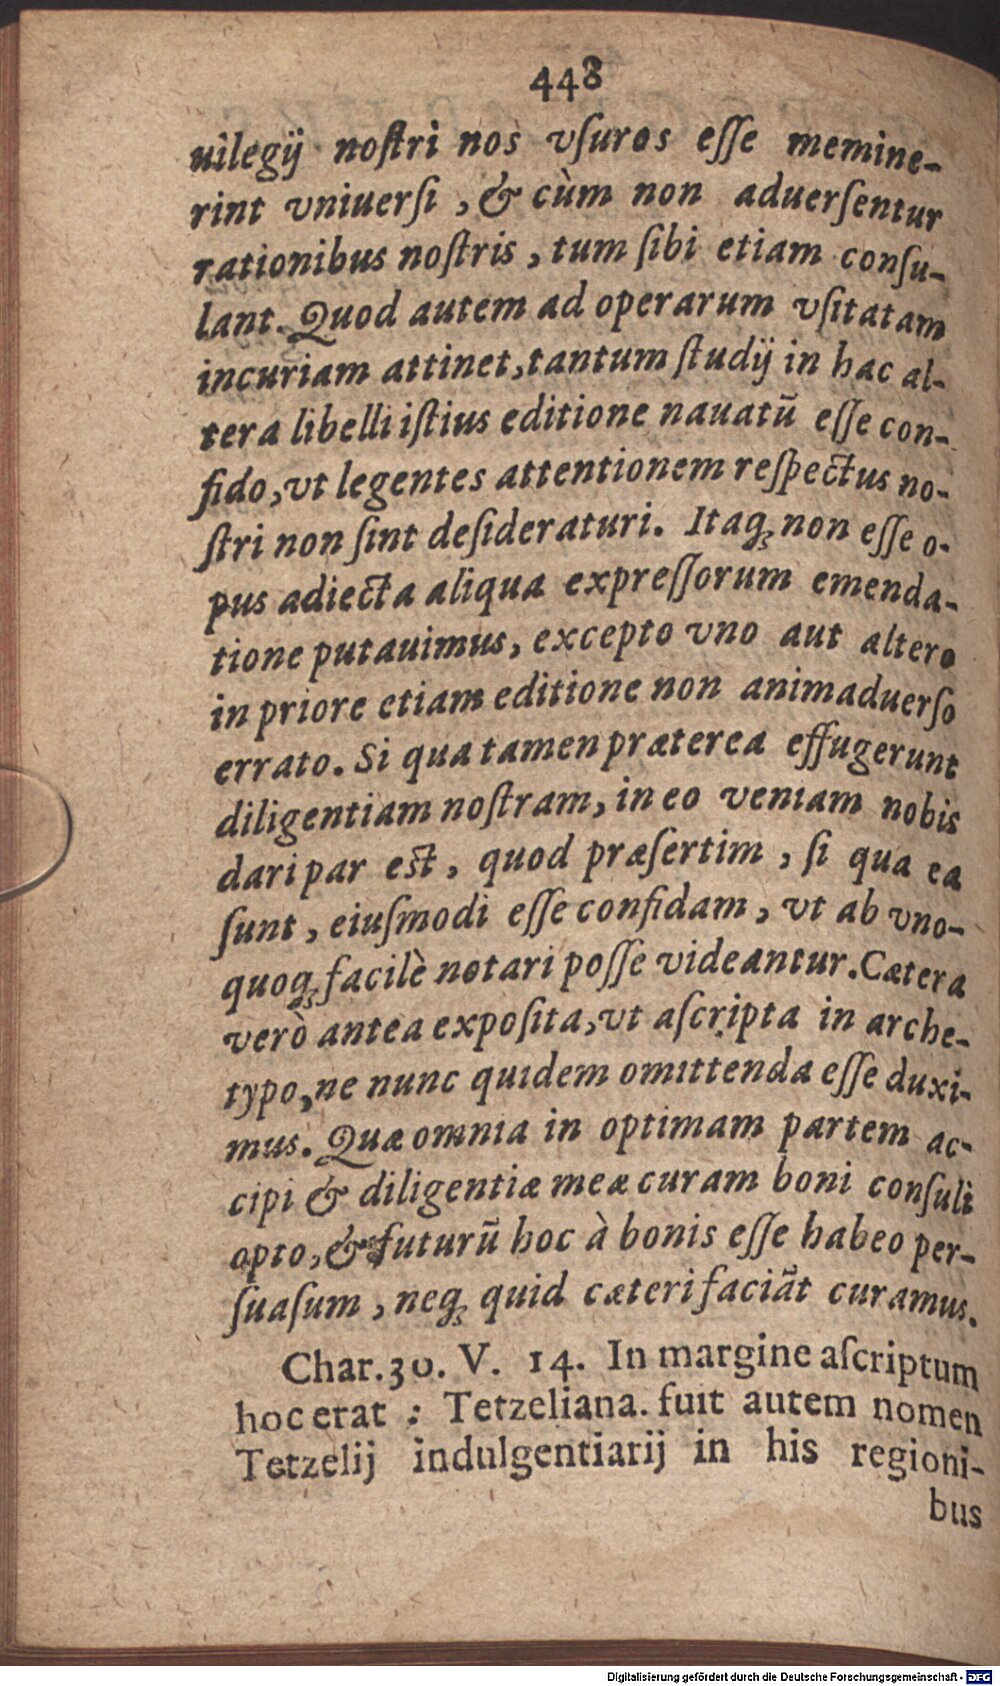 448
uilegij nostri nos vsuros esse memine-
rint vniuersi, & cùm non aduersentur
rationibus nostris, tum sibi etiam consu-
lant. Quod autem ad operarum vsitatam
incuriam attinet, tantum studij in hac al-
tera libelli istius editione nauatū esse con-
fido, vt legentes attentionem respectus no-
stri non sint desideraturi. Itaq; non esse o-
pus adiecta aliqua expressorum emenda-
tione putauimus, excepto vno aut altero
in priore etiam editione non animaduerso
errato. Si qua tamen præterea effugerunt
diligentiam nostram, in eo veniam nobis
dari par est, quod præsertim, si qua ea
sunt, eiusmodi esse confidam, vt ab vno-
quoq; facilè notari posse videantur. Cætera
verò antea exposita, vt ascripta in arche-
typo, ne nunc quidem omittenda esse duxi-
mus. Quæ omnia in optimam partem ac-
cipi & diligentiæ meæ curam boni consuli
opto, & futurū hoc à bonis esse habeo per-
suasum, neq; quid cæteri faciāt curamus.
Char. 30. V. 14. In margine ascriptum
hoc erat : Tetzeliana. fuit autem nomen
Tetzelij indulgentiarij in his regioni-
bus
Digitalisierung gefördert durch die Deutsche Forschungsgemeinschaft - DFG